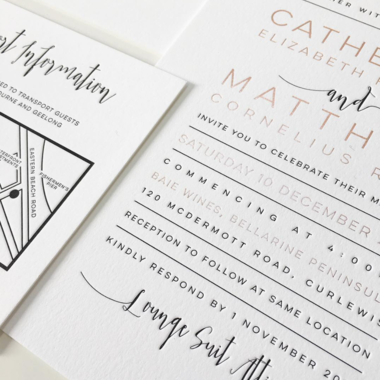 Information
TO TRANSPORT GUESTS
AND GEELONG
EASTERN BEACH ROAD
FISHERMEN'S
PIER
WITH
ELIZABETH
and
CORNELIUS
INVITE YOU TO CELEBRATE THEIR
SATURDAY 10 DECEMBER
COMMENCING AT 4:00
BAIE WINES, BELLARINE
120 MCDERMOTT ROAD, CURLEWIS
RECEPTION TO FOLLOW AT SAME LOCATION
KINDLY RESPOND BY 1 NOVEMBER
Lounge Suit